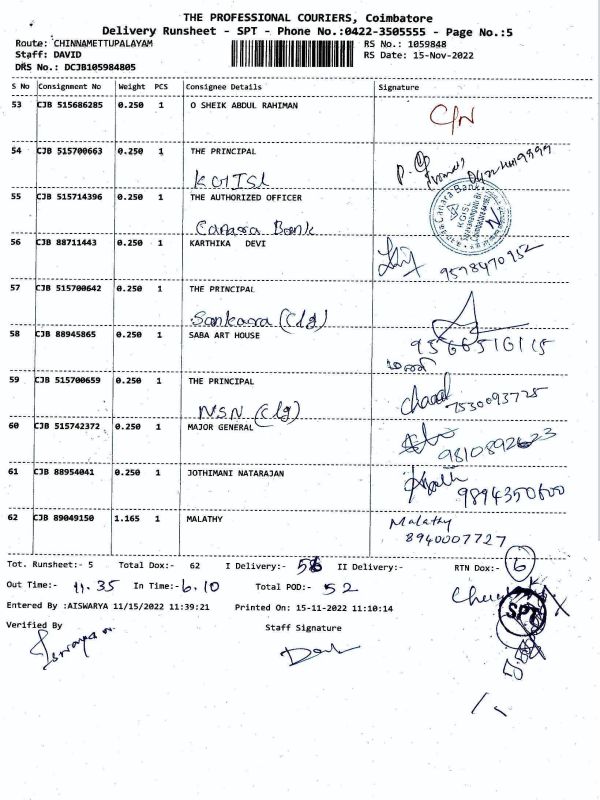 THE PROFESSIONAL COURIERS, Coimbatore
Delivery Runsheet - SPT - Phone No.:0422-3505555 - Page No.:5
Route: CHINNAMETTUPALAYAM
Staff: DAVID
DRS No.: DCJB105984805
RS No.: 1059848
RS Date: 15-Nov-2022
S No Consignment No Weight PCS Consignee Details Signature
53 CJB 515686285 0.250 1 O SHEIK ABDUL RAHIMAN
C/N
54 CJB 515700663 0.250 1 THE PRINCIPAL
KGISL
55 CJB 515714396 0.250 1 THE AUTHORIZED OFFICER
Canara Bank
Canara Bank
KGISL
56 CJB 88711443 0.250 1 KARTHIKA DEVI
9578470952
57 CJB 515700642 0.250 1 THE PRINCIPAL
Sankara (Clg)
58 CJB 88945865 0.250 1 SABA ART HOUSE
9566516115
59 CJB 515700659 0.250 1 THE PRINCIPAL
NSN (Clg)
7530093725
60 CJB 515742372 0.250 1 MAJOR GENERAL
9810892623
61 CJB 88954041 0.250 1 JOTHIMANI NATARAJAN
9894350600
62 CJB 89049150 1.165 1 MALATHY
Malathy
8940007727
Tot. Runsheet:- 5 Total Dox:- 62 I Delivery:- 56 II Delivery:- RTN Dox:- 6
Out Time:- 11.35 In Time:- 6.10 Total POD:- 52
Entered By :AISWARYA 11/15/2022 11:39:21 Printed On: 15-11-2022 11:10:14
SPT
Verified By Staff Signature